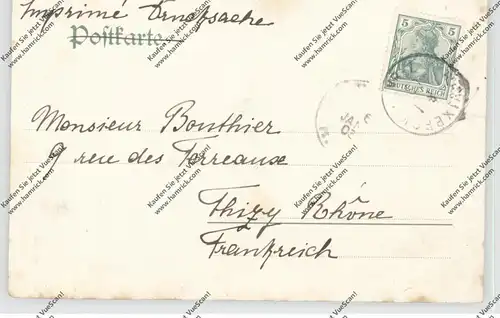 Imprimé Drucksache
Postkarte
5 5
DEUTSCHES REICH
Monsieur Bonthier
9 rue des Terreaux
Thizy Rhône
Frankreich
Kaufen Sie jetzt VueScan!
www.hamrick.com